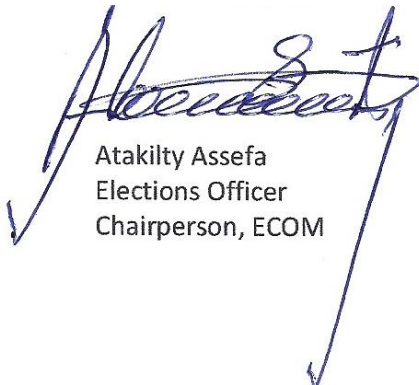 Atakilty Assefa
Elections Officer
Chairperson, ECOM